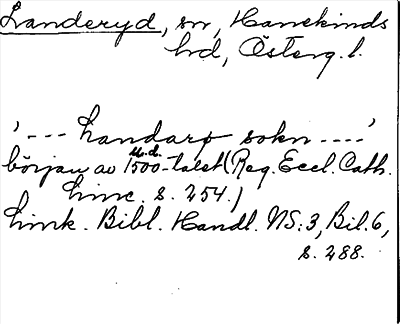 Landeryd, sn, Hanekinds
hd, Österg. l.
'--- Landarø sokn ----'
u.d.
början av 1500-talet (Reg. Eccl. Cath.
Linc. s. 254.)
Link. Bibl. Handl. NS:3, Bil. 6,
s. 288.